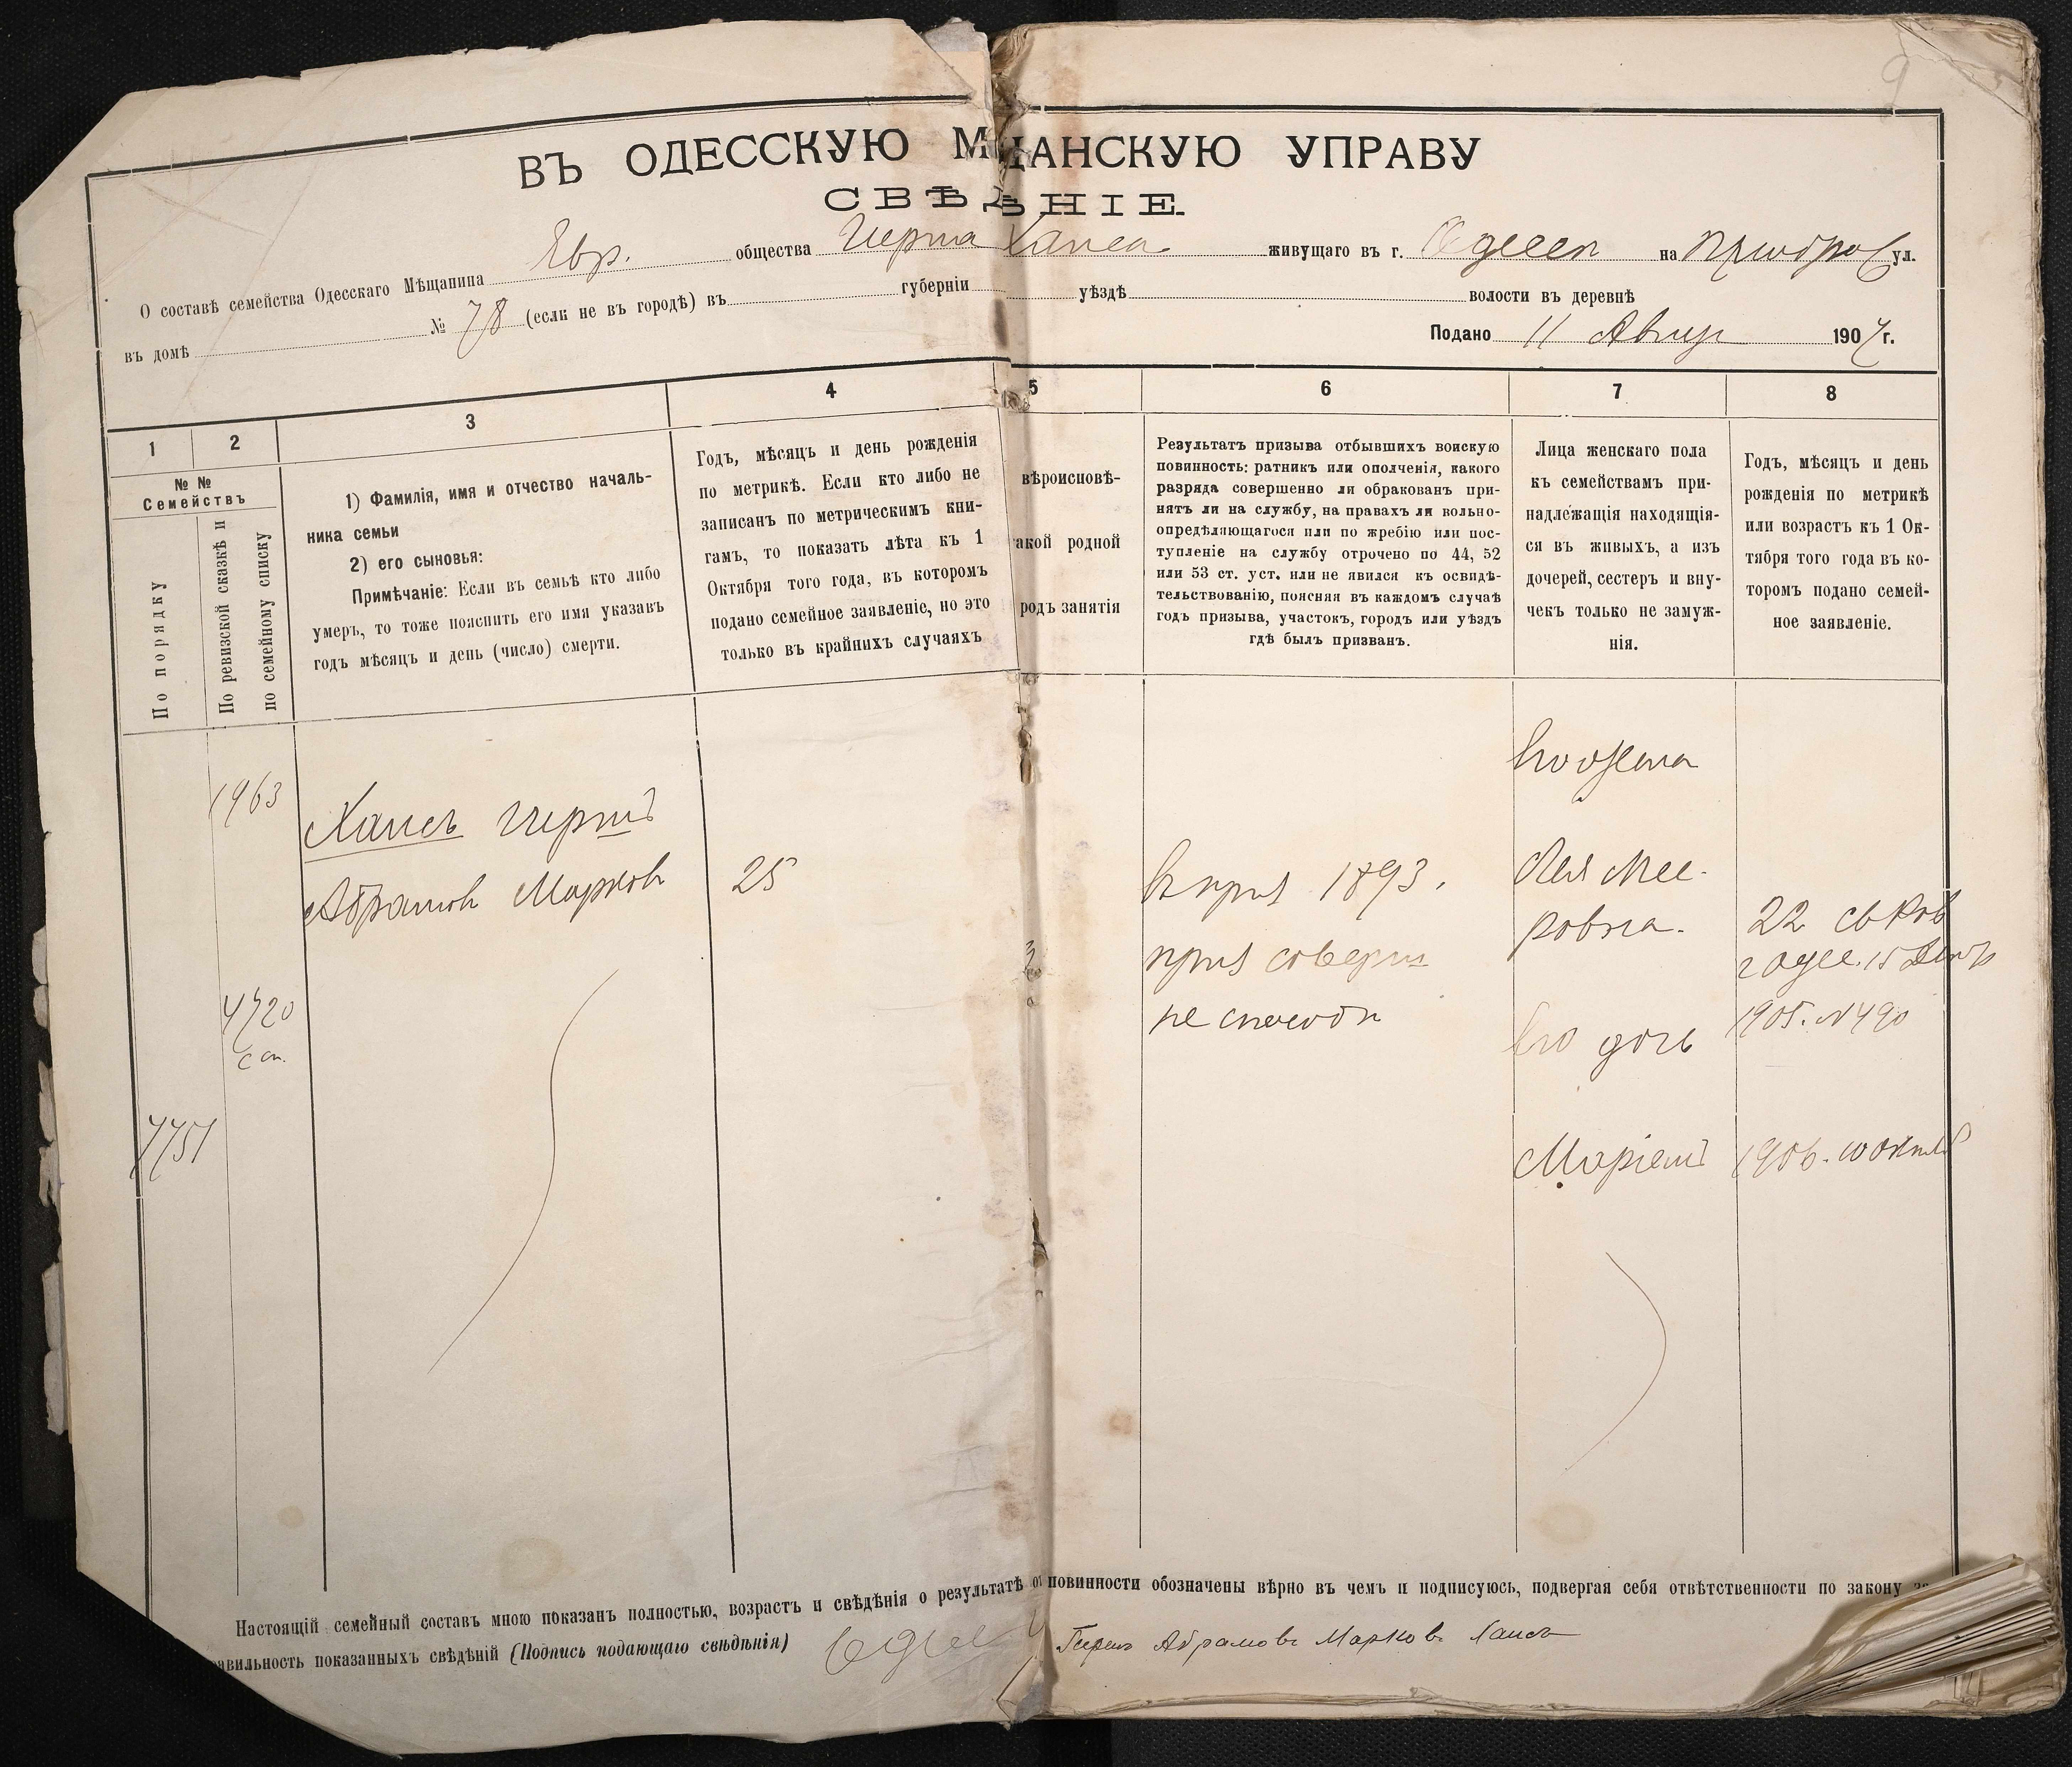 9
ВЪ ОДЕССКУЮ М ЩАНСКУЮ УПРАВУ
СВѢДѢНІЕ
О составѣ семейства Одесскаго Мѣщанина Евр. общества Герша Хаиса живущаго въ г. Одессѣ на ул.
въ домѣ № 78 (если не въ городѣ) въ губерніи уѣздѣ волости въ деревнѣ
Подано 11 Август 1907 г.
1
2
3
4
5
6
7
8
№ №
Семействъ
По порядку
По ревизской сказкѣ и
по семейному списку
1) Фамилія, имя и отчество началь-
ника семьи
2) его сыновья:
Примѣчаніе: Если въ семьѣ кто либо
умеръ, то тоже пояснить его имя указавъ
годъ мѣсяцъ и день (число) смерти.
Годъ, мѣсяцъ и день рожденія
по метрикѣ. Если кто либо не
записанъ по метрическимъ кни-
гамъ, то показать лѣта къ 1
Октября того года, въ которомъ
подано семейное заявленіе, но это
только въ крайнихъ случаяхъ
вѣроисповѣ-
акой родной
родъ занятія
Результатъ призыва отбывшихъ воискую
повинность: ратникъ или ополченія, какого
разряда совершенно ли обракованъ при-
нятъ ли на службу, на правахъ ли вольно-
опредѣляющагося или по жребію или пос-
тупленіе на службу отрочено по 44, 52
или 53 ст. уст. или не явился къ освидѣ-
тельствованію, поясняя въ каждомъ случаѣ
годъ призыва, участокъ, городъ или уѣздъ
гдѣ былъ призванъ.
Лица женскаго пола
къ семействамъ при-
надлежащія находящія-
ся въ живыхъ, а изъ
дочерей, сестеръ и вну-
чекъ только не замуж-
нія.
Годъ, мѣсяцъ и день
рожденія по метрикѣ
или возрастъ къ 1 Ок-
тября того года въ ко-
торомъ подано семей-
ное заявленіе.
1963
Хаисъ Гершъ
Абрамов Марков
25
4720
с сп.
7751
В приз 1893.
приз соверш
не способн
Его жена
Лея Мее-
ровна.
22
1905. №490
Его дочь
Маріемъ
1906. 10 Октяб
Настоящій семейный составъ мною показанъ полностью, возрастъ и свѣдѣнія о результатѣ от повинности обозначены вѣрно въ чемъ и подписуюсь, подвергая себя отвѣтственности по закону за
авильность показанныхъ свѣдѣній (Подпись подающаго свѣдѣнія) Герш Абрамовъ Марковъ Хаисъ